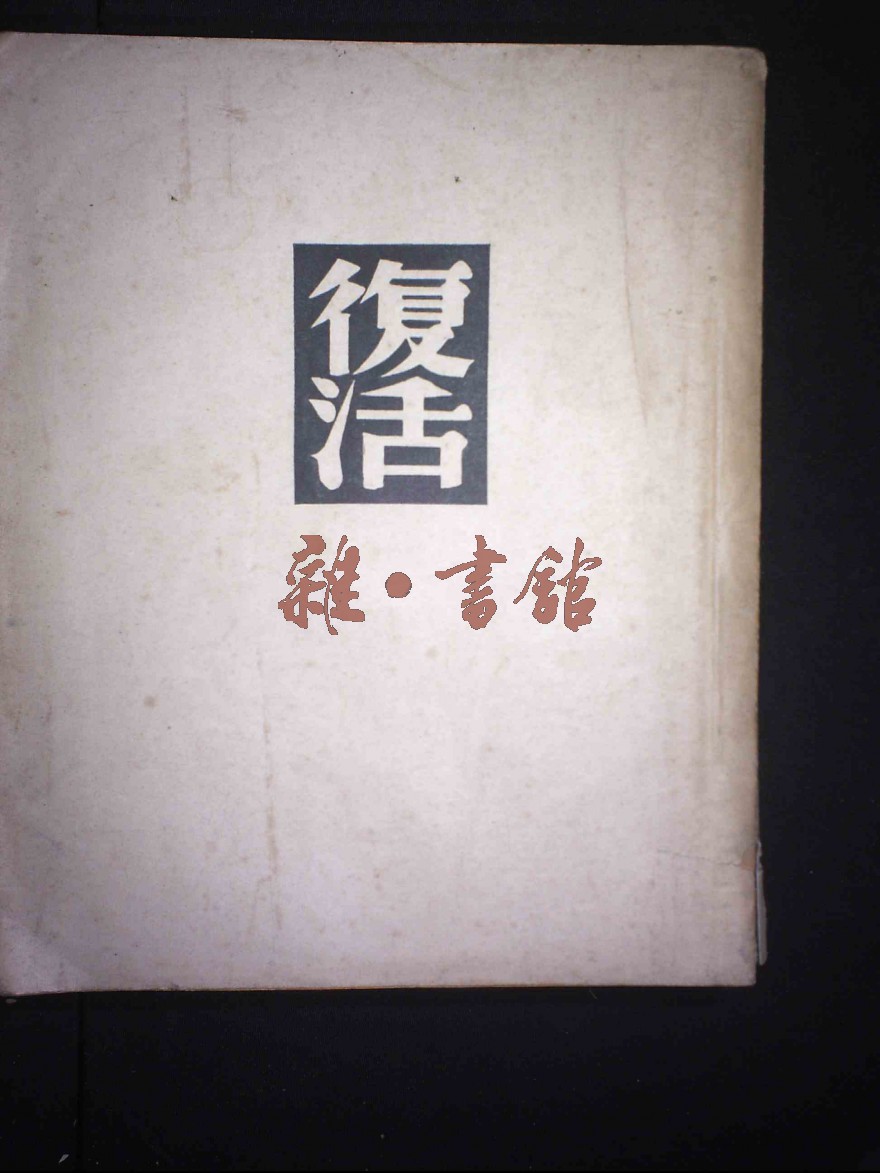 復活
雜·書館